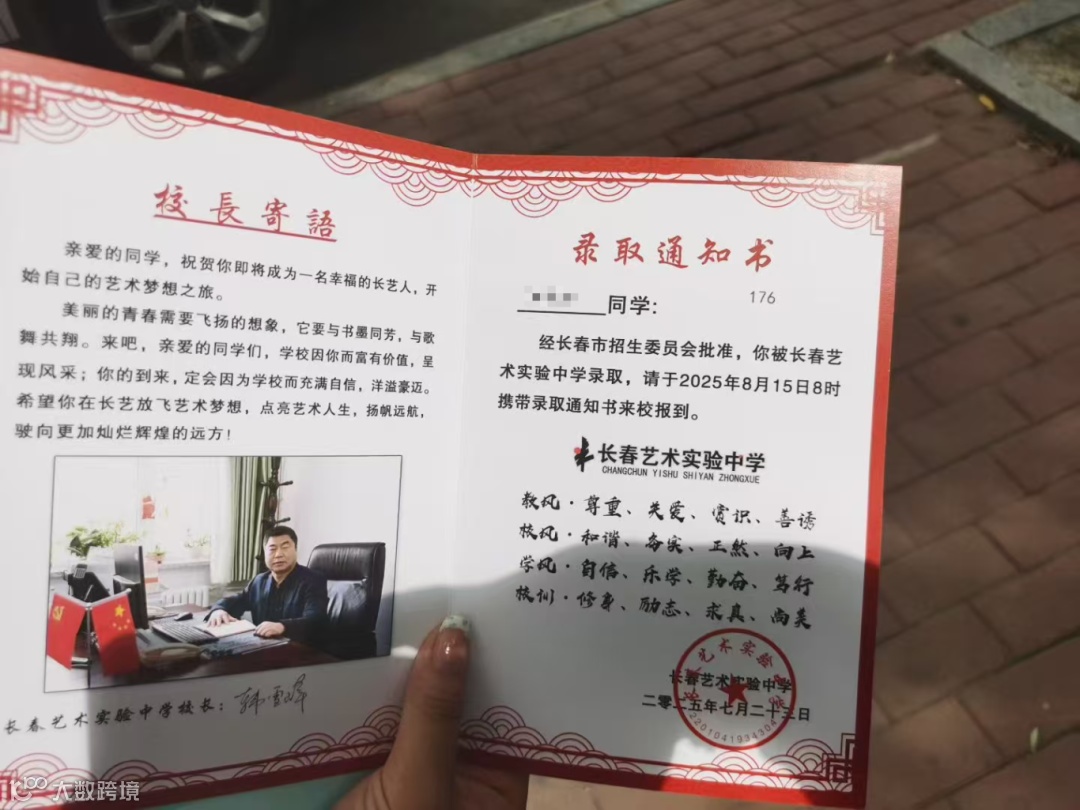 校長寄語
亲爱的同学，祝贺你即将成为一名幸福的长艺人，开
始自己的艺术梦想之旅。
美丽的青春需要飞扬的想象，它要与书墨同芳，与歌
舞共翔。来吧，亲爱的同学们，学校因你而富有价值，呈
现风采；你的到来，定会因为学校而充满自信，洋溢豪迈。
希望你在长艺放飞艺术梦想，点亮艺术人生，扬帆远航，
驶向更加灿烂辉煌的远方！
长春艺术实验中学校长：韩雪峰
录取通知书
同学：
176
经长春市招生委员会批准，你被长春艺
术实验中学录取，请于2025年8月15日8时
携带录取通知书来校报到。
长春艺术实验中学
CHANGCHUN YISHU SHIYAN ZHONGXUE
教风·尊重、关爱、赏识、善诱
校风·和谐、务实、正然、向上
学风·自信、乐学、勤奋、笃行
校训·修身、励志、求真、尚美
长春艺术实验中学
二零二五年七月二十三日
大数跨境